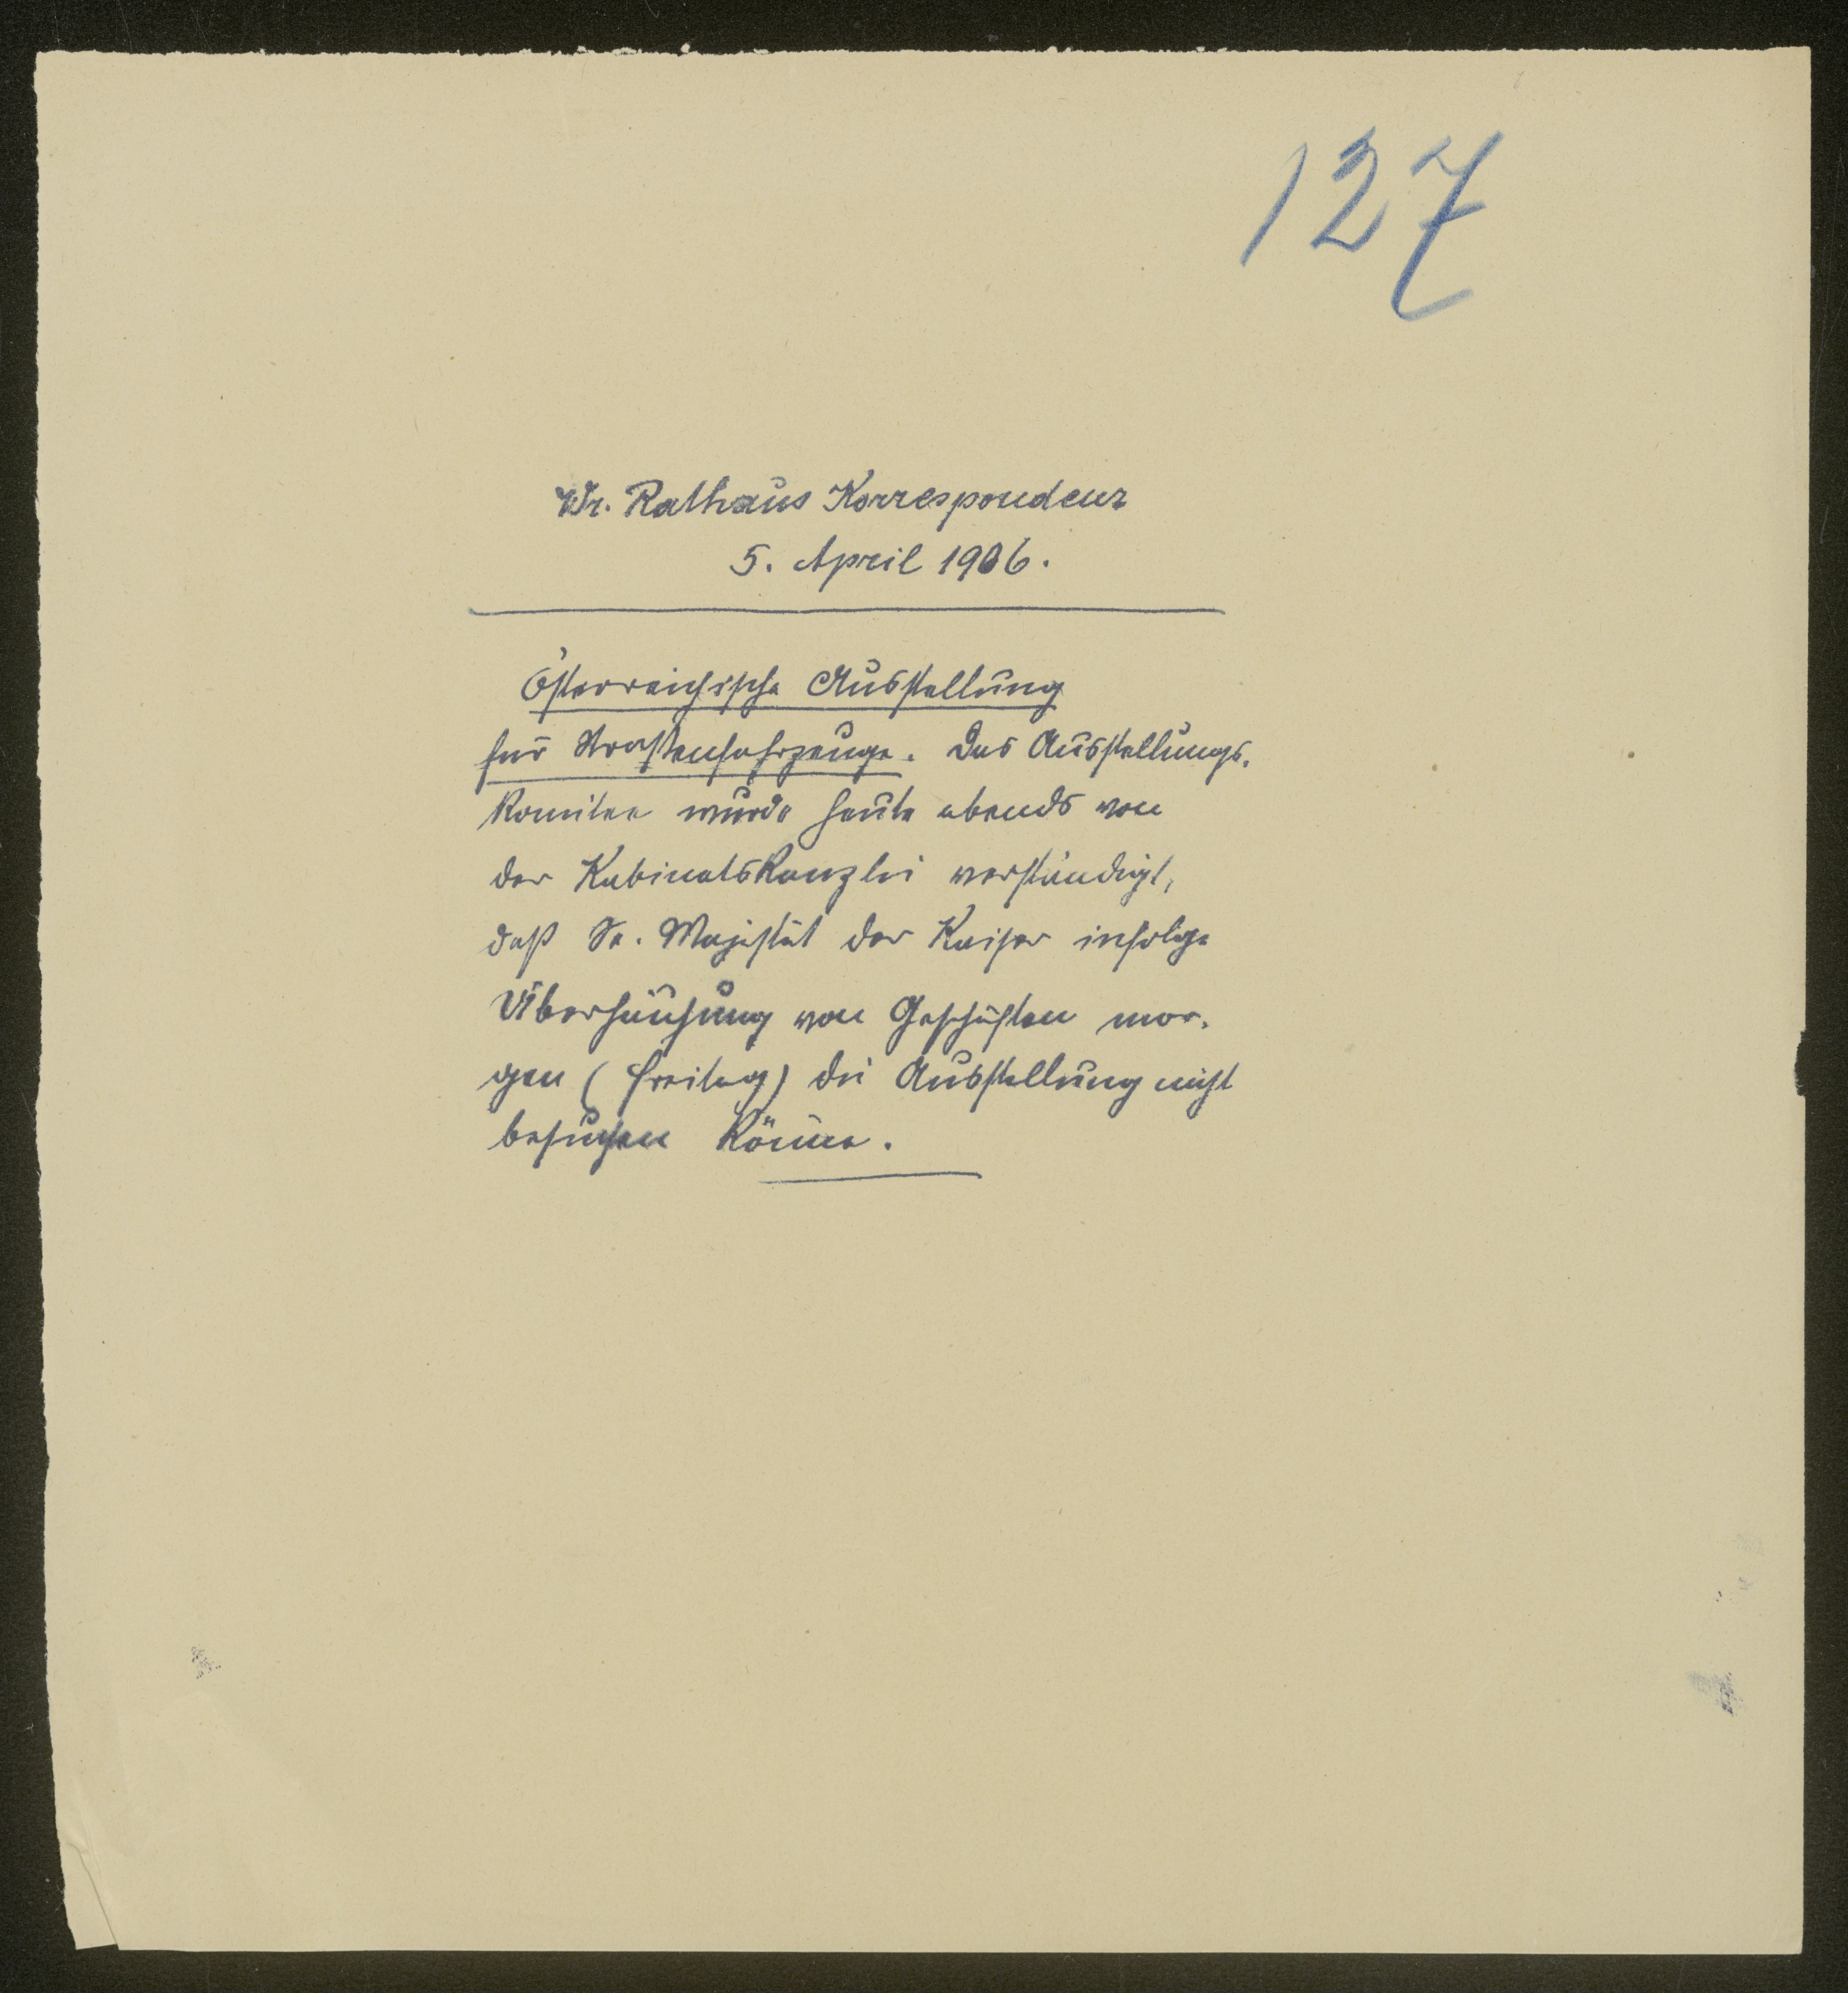 127
Wr. Rathaus Korrespondenz
5. April 1906.
Österreichische Ausstellung
für Strassenfahrzeuge. Das Ausstellungs-
Komitee wurde heute abends von
der Kabinetskanzlei verständigt,
daß Se. Majestät der Kaiser infolge
Überhäufung von Geschäften mor-
gen (Freitag) die Ausstellung nicht
besuchen könne.